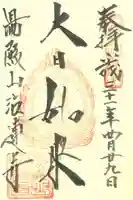 奉拝 成三十一年四月廿九日
大日如来
湯殿山注連寺